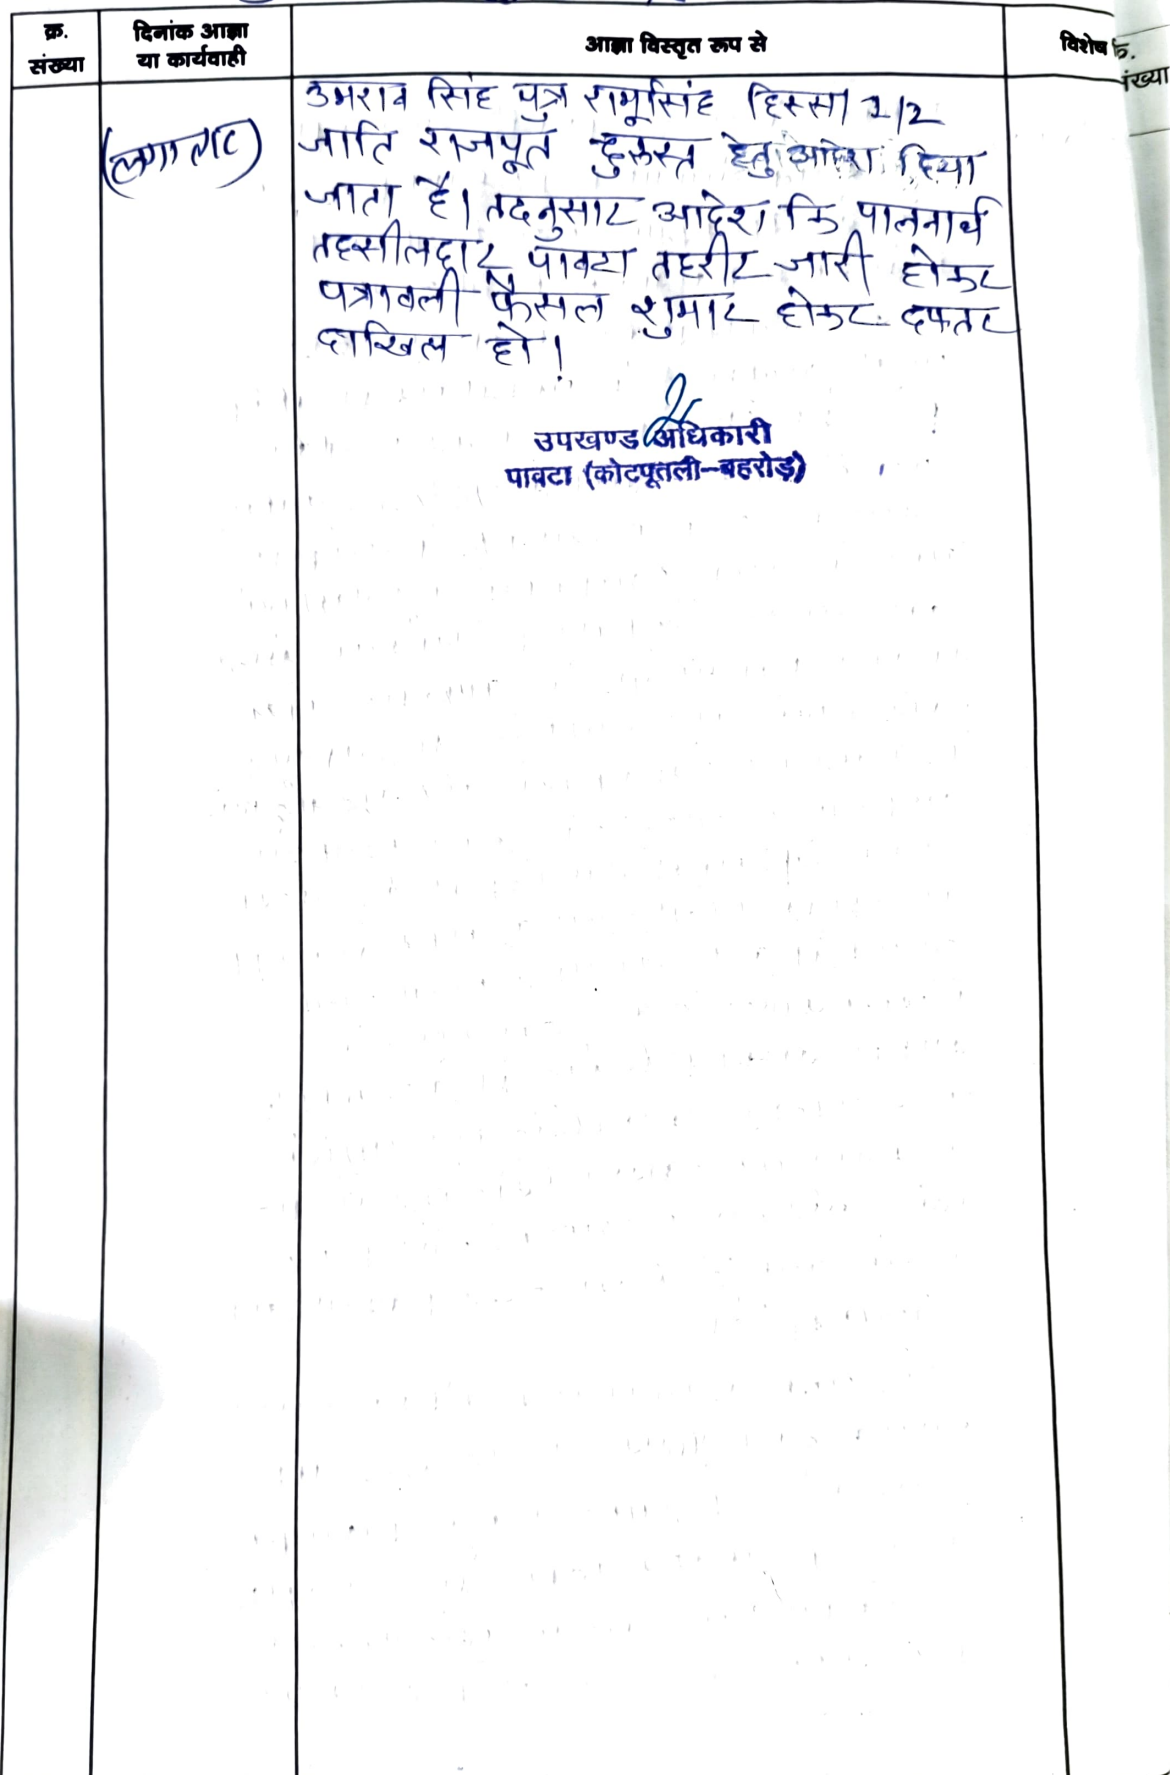 क्र.
संख्या
दिनांक आज्ञा
या कार्यवाही
आज्ञा विस्तृत रूप से
विशेष
संख्या
(लगातार)
उमराव सिंह पुत्र शम्भूसिंह हिस्सा 1/2
जाति राजपूत दुरुस्त हेतु आदेश दिया
जाता है। तदनुसार आदेश कि पालनार्थ
तहसीलदार पावटा तहरीर जारी होकर
पत्रावली फैसल शुमार होकर दफतर
दाखिल हो!
उपखण्ड अधिकारी
पावटा (कोटपूतली-बहरोड़)